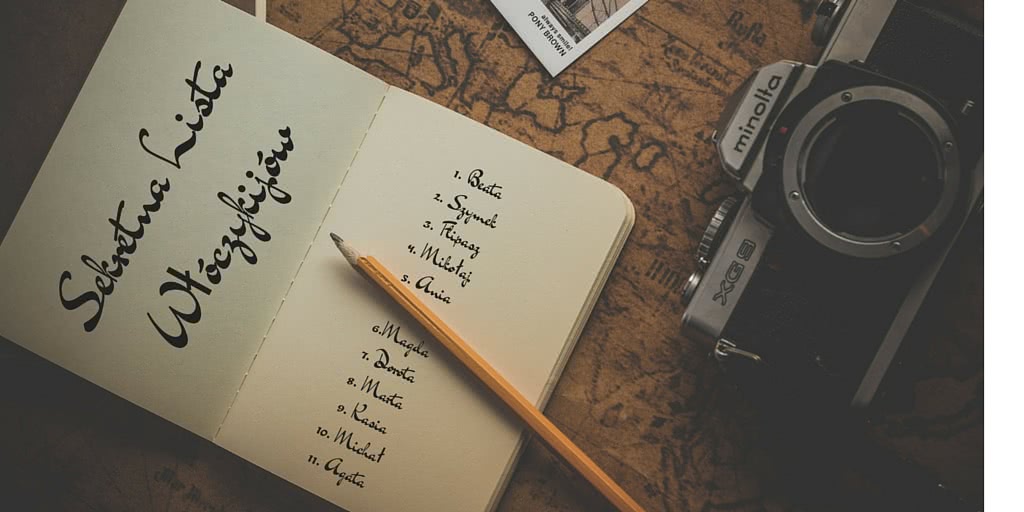 Sekretna Lista
Włóczykijów
1. Beata
2. Szymek
3.
4. Mikołaj
5. Ania
6.Magda
7. Dorota
8. Marta
9. Kasia
10. Michał
11. Agata
always smile!
PONY BROWN
minolta
XG 9